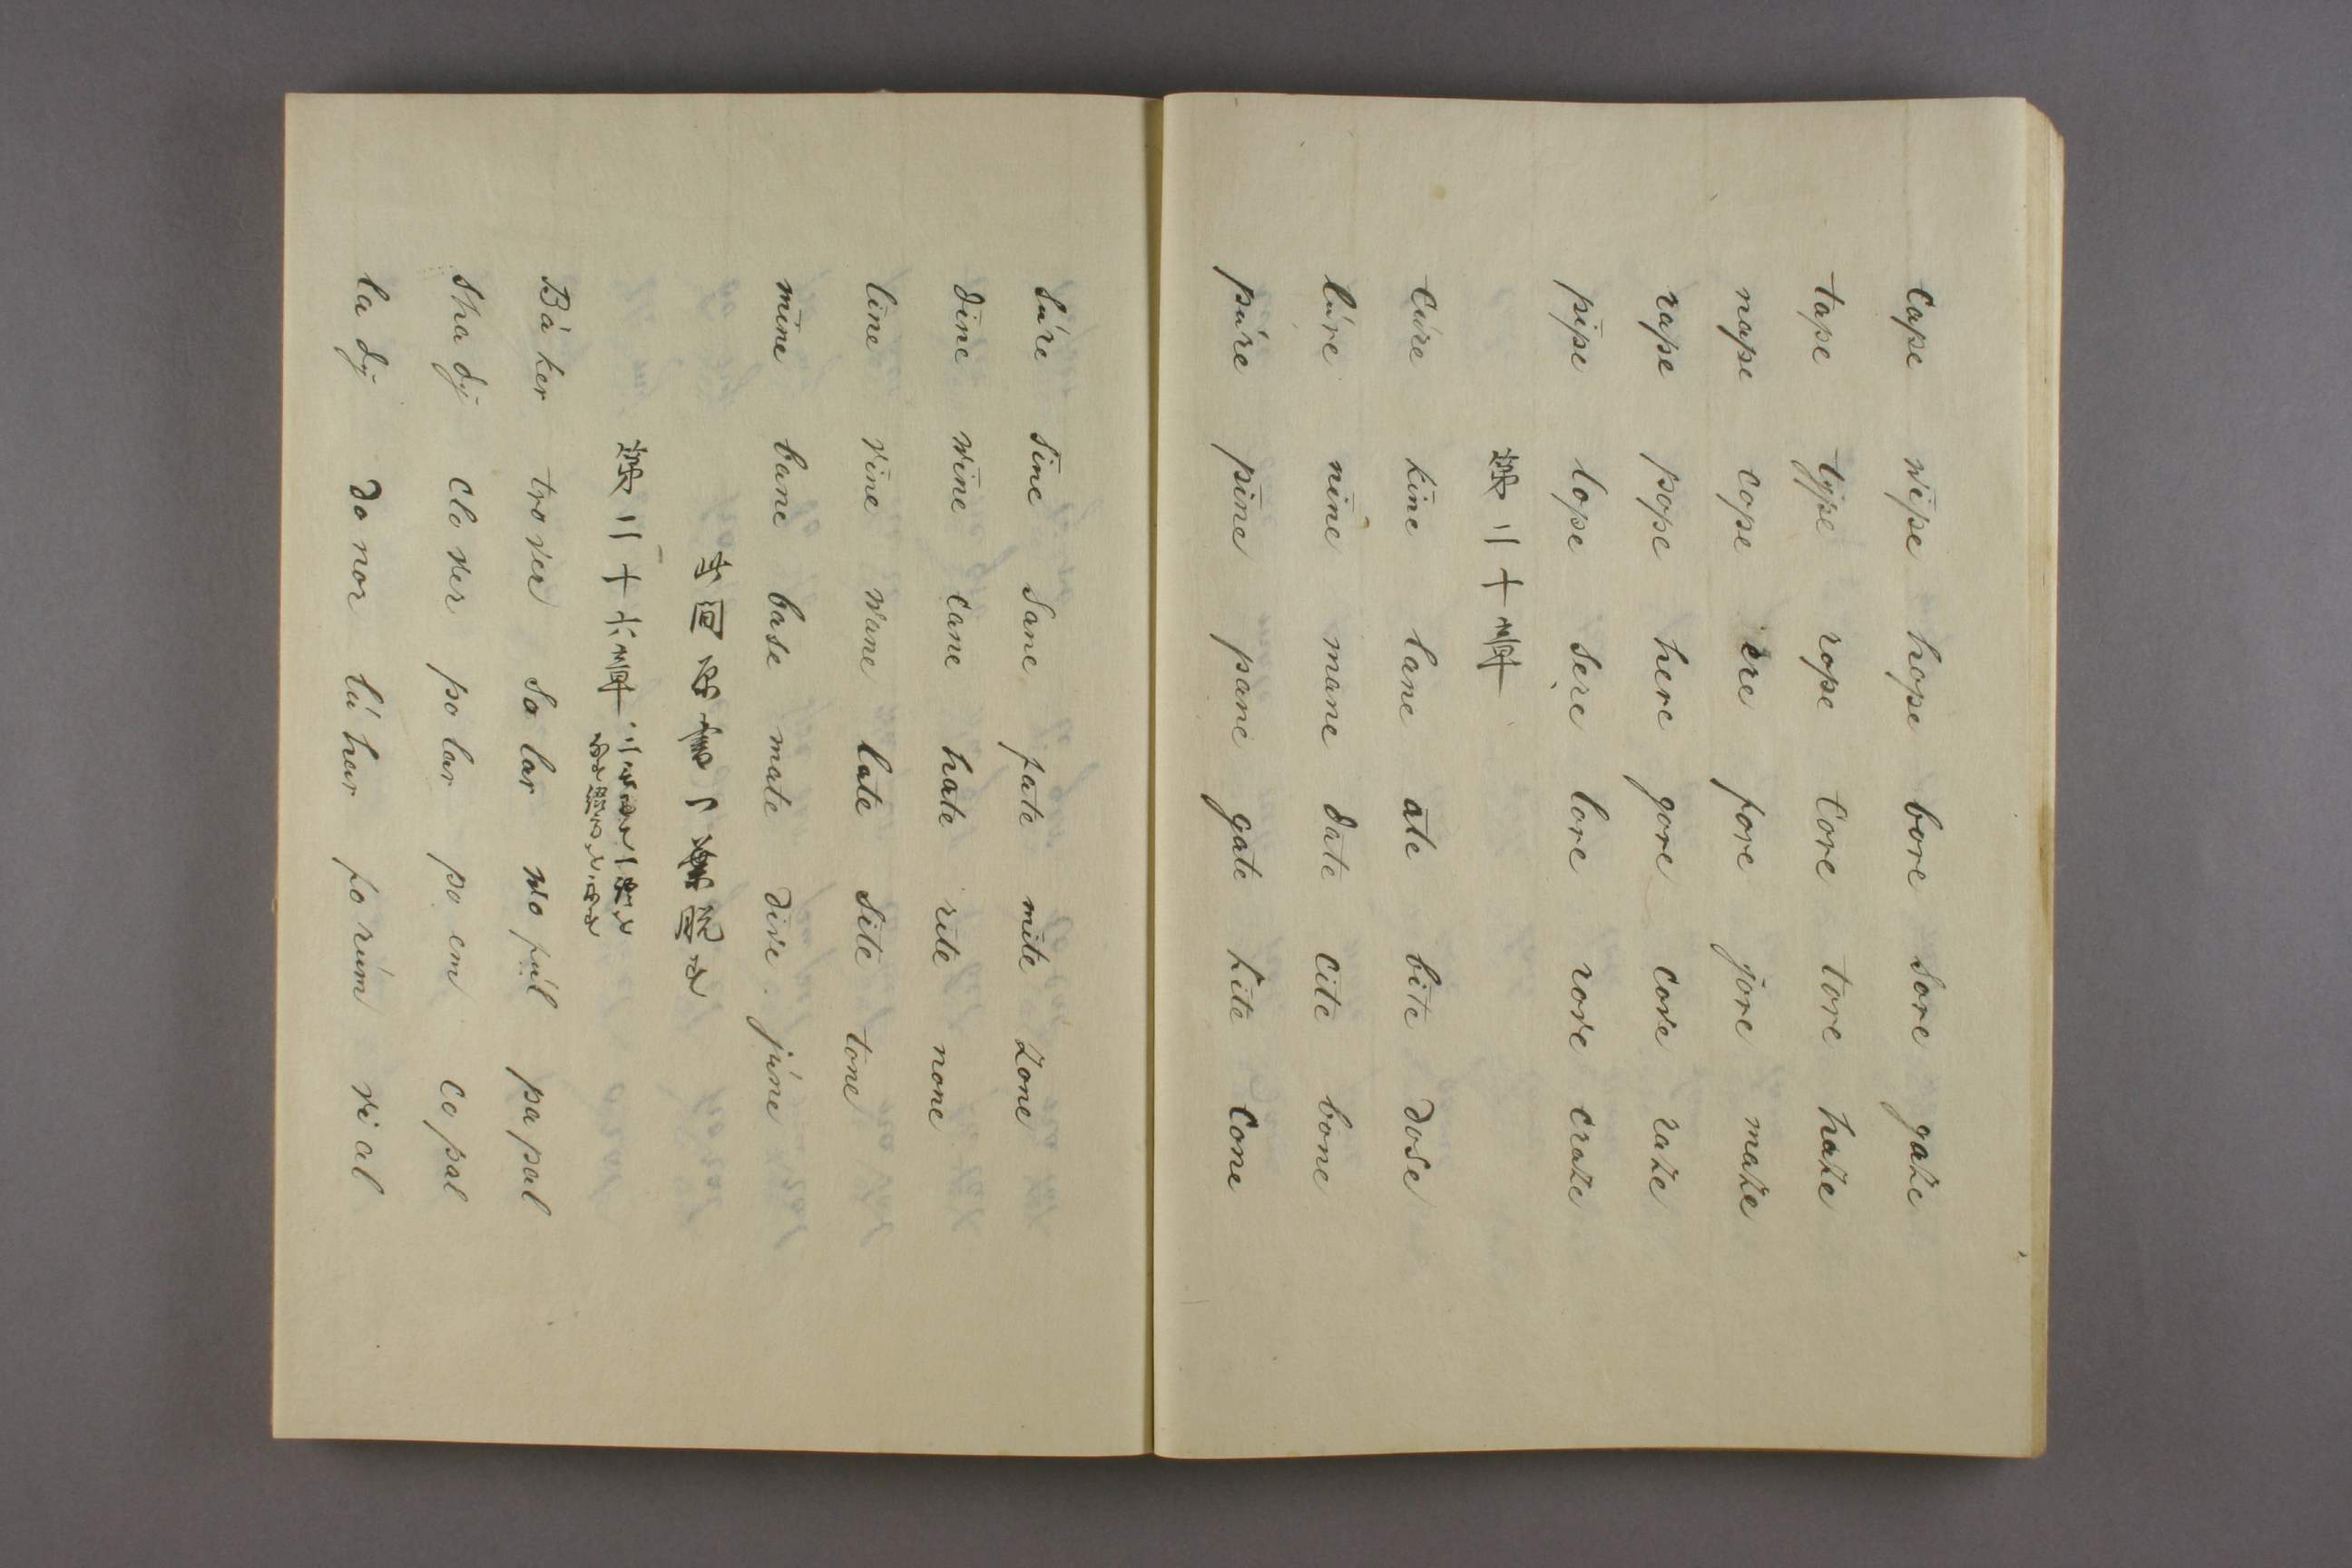 Cape wīpe hope bore sore gaze
tape type rope Core tore haze
nape cope ere fore yore maze
rape pope here gore cove raze
pīpe lope sere lore rove craze
第二十章
Cúre kīne lane ate bīte dose
lúre nīne mane date cīte bone
púre pīne pane gate kīte Cone
Súre sīne Sane fate mīte Zone
dīne wīne cane hate rīte none
līne vīne wane late sīte tone
mīne bane base mate dive júne
Bā ker tro ver So lar wo fúl pa pal
Sha dy clo ver po lar po em co pal
la dy do nor lú nar fo rúm vi al